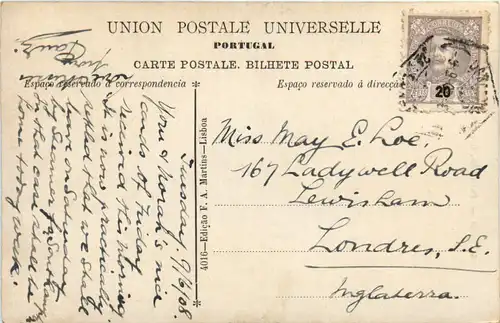 UNION POSTALE UNIVERSELLE
PORTUGAL
CARTE POSTALE. BILHETE POSTAL
Espaço reservado á correspondencia
Espaço reservado á direcção
CORREIOS
20
4016—Edição F. A. Martins—Lisboa
Tuesday. 9/6/08.
Your & Norah's nice
cards of Friday
received this morning
It is now practically
settled that we shall
leave on Saturday
by Steamer for
in that case shall be
home today week.
Miss May E. Loe.
167 Ladywell Road
Lewisham
Londres, S.E.
Inglaterra.